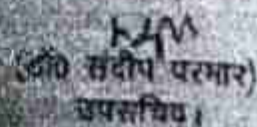 (डॉ0 संदीप परमार)
उपसचिव।